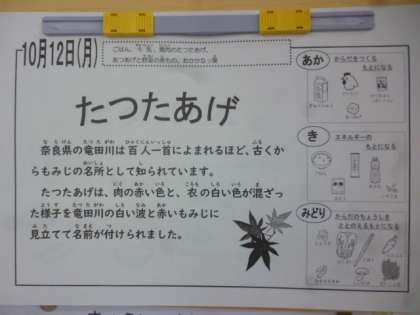 10月12日(月)
ごはん、牛乳、鶏肉のたつたあげ、
あつあげと野菜の煮もの、おかかなっ葉
たつたあげ
奈良県の竜田川は百人一首によまれるほど、古くか
らもみじの名所として知られています。
たつたあげは、肉の赤い色と、衣の白い色が混ざっ
た様子を竜田川の白い波と赤いもみじに
見立てて名前が付けられました。
あか
からだをつくる
もとになる
き
エネルギーの
もとになる
みどり
からだのちょうしを
ととのえるもとになる